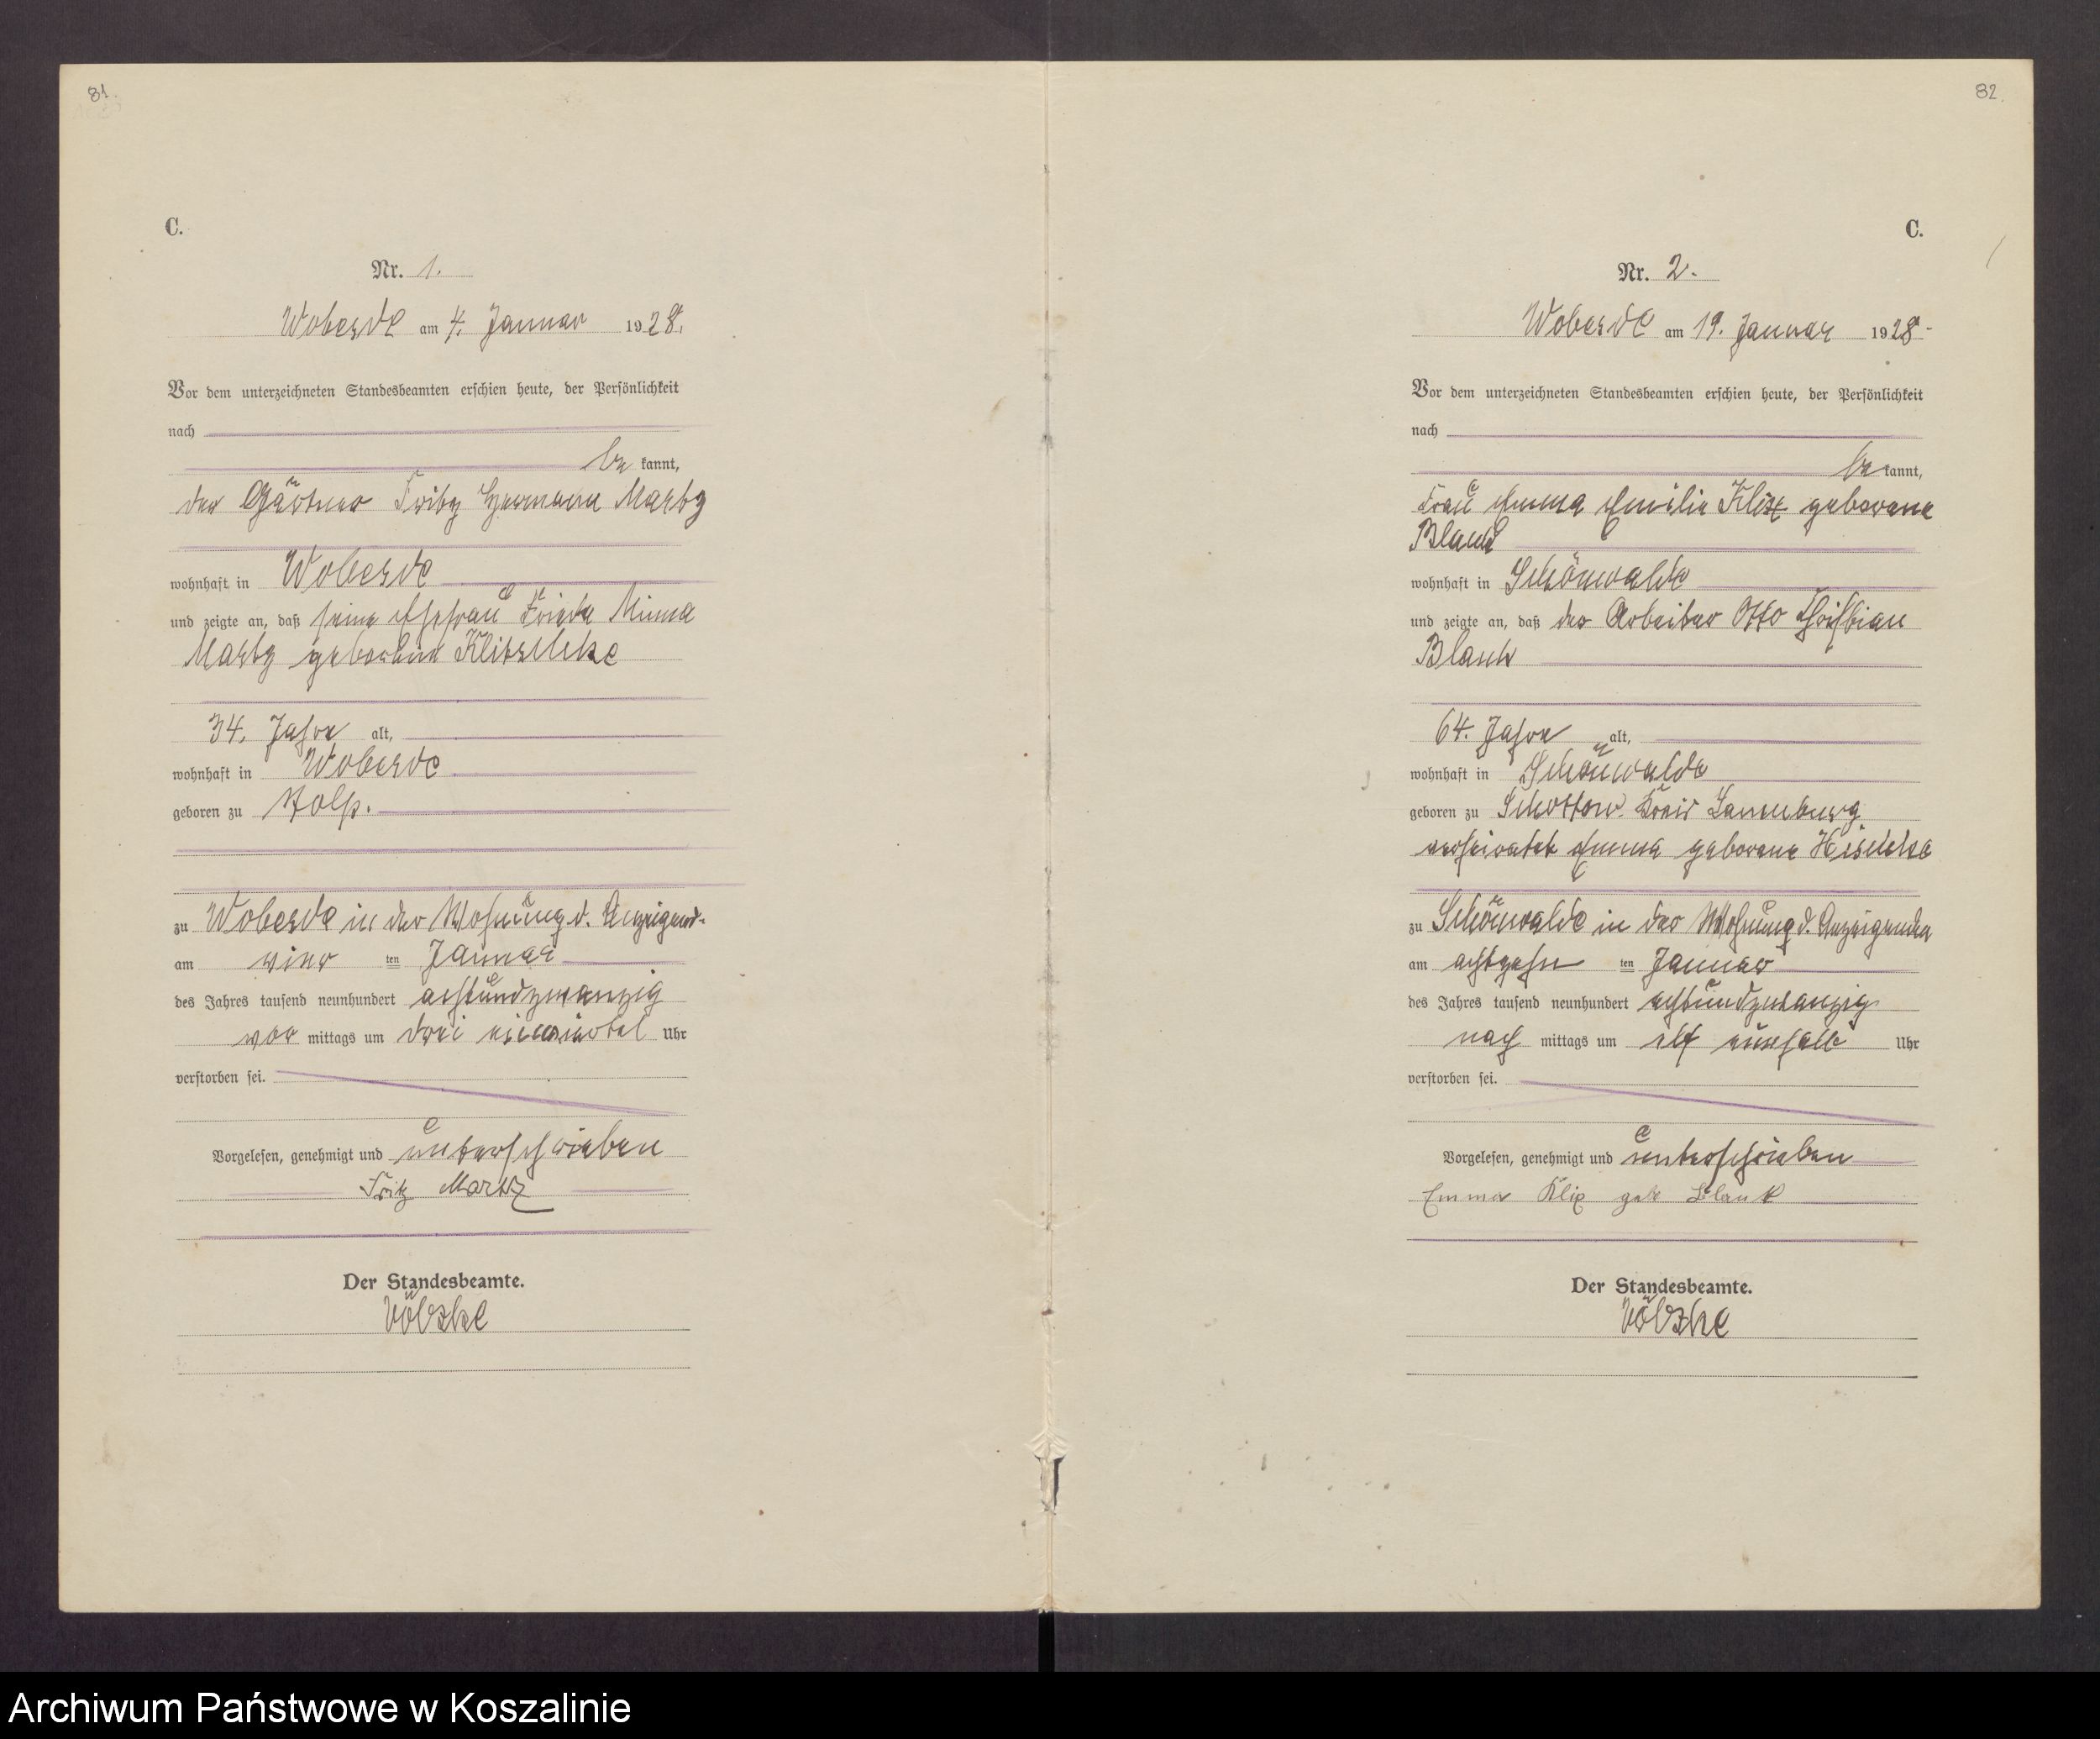 81.
C.
Nr. 1.
Woberde am 4. Januar 1928.
Vor dem unterzeichneten Standesbeamten erschien heute, der Persönlichkeit
nach
be kannt,
der Gärtner Fritz Hermann Martz
wohnhaft in Woberde
und zeigte an, daß seine Ehefrau Frieda Minna
Martz geborene Klitschke
34. Jahre alt,
wohnhaft in Woberde
geboren zu Stolp.
zu Woberde in der Wohnung d. Anzeigend-
am vier ten Januar
des Jahres tausend neunhundert achtundzwanzig
vor mittags um drei Uhr
verstorben sei.
Vorgelesen, genehmigt und unterschrieben
Fritz Martz
Der Standesbeamte.
Völzke
82.
C.
Nr. 2.
Woberde am 19. Januar 1928.
Vor dem unterzeichneten Standesbeamten erschien heute, der Persönlichkeit
nach
be kannt,
Frau Emma Emilie Klix geborene
Blank
wohnhaft in Schönwalde
und zeigte an, daß der Arbeiter Otto Christian
Blank
64. Jahre alt,
wohnhaft in Schönwalde
geboren zu Schottow Kreis Lauenburg
verheiratet Emma geborene
zu Schönwalde in der Wohnung d. Anzeigenden
am achtzehn ten Januar
des Jahres tausend neunhundert achtundzwanzig
nach mittags um elf einhalb Uhr
verstorben sei.
Vorgelesen, genehmigt und unterschrieben
Emma Klix geb Blank
Der Standesbeamte.
Völzke
Archiwum Państwowe w Koszalinie